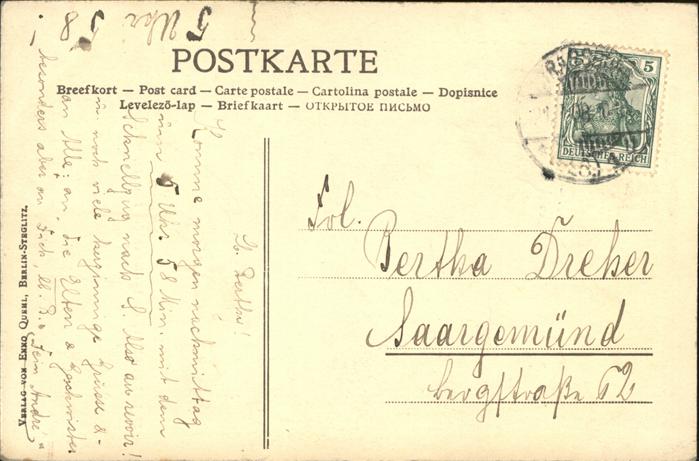 5 Uhr 58
POSTKARTE
Breefkort — Post card — Carte postale — Cartolina postale — Dopisnice
Levelező-lap — Briefkaart — ОТКРЫТОЕ ПИСЬМО
5
DEUTSCHES REICH
Frl.
Bertha Dreher
Saargemünd
Bergstraße 62
Lb. Bertha!
Komme morgen nachmittag
um 5 Uhr 58 Min. mit dem
Schnellzug nach S. Also au revoir!
noch viele herzinnige Grüsse &
an Alle; an die Eltern & Geschwister
besonders aber an Dich, lb. B. Dein André
VERLAG VON ENNO QUEHL, BERLIN-STEGLITZ.